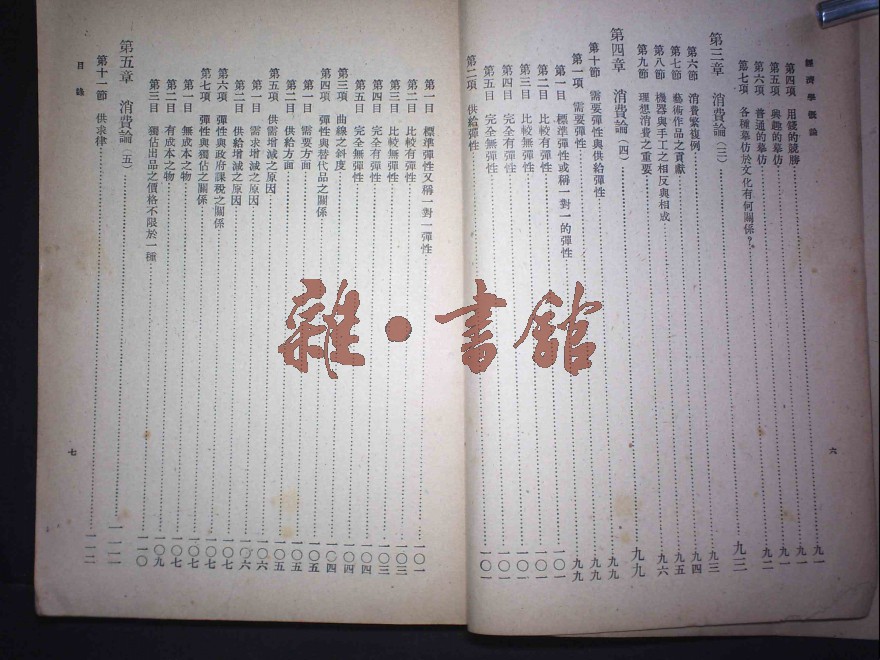 經濟學概論
第四項　用錢的競勝……九一
第五項　興趣的摹仿……九一
第六項　普通的摹仿……九二
第七項　各種摹仿於文化有何關係？……九二
第三章　消費論（三）……九三
第六節　消費繁復例……九三
第七節　藝術作品之貢獻……九四
第八節　機器與手工之相反與相成……九五
第九節　理想消費之重要……九六
第四章　消費論（四）……九九
第十節　需要彈性與供給彈性……九九
第一項　需要彈性……九九
第一目　標準彈性或稱一對一的彈性……一〇一
第二目　比較有彈性……一〇一
第三目　比較無彈性……一〇一
第四目　完全有彈性……一〇一
第五目　完全無彈性……一〇一
第二項　供給彈性
六
第一目　標準彈性又稱一對一彈性……一〇一
第二目　比較有彈性……一〇三
第三目　比較無彈性……一〇三
第四目　完全有彈性……一〇四
第五目　完全無彈性……一〇四
第三項　曲線之斜度……一〇四
第四項　彈性與替代品之關係……一〇四
第一目　需要方面……一〇五
第二目　供給方面……一〇五
第五項　供需增減之原因……一〇六
第一目　需求增減之原因……一〇六
第二目　供給增減之原因……一〇七
第六項　彈性與政府課稅之關係……一〇七
第七項　彈性與獨佔之關係……一〇七
第一目　無成本之物……一〇七
第二目　有成本之物……一〇九
第三目　獨佔出品之價格不限於一種……一一〇
第五章　消費論（五）……一一一
第十一節　供求律……一一二
目錄
七
雜·書舘